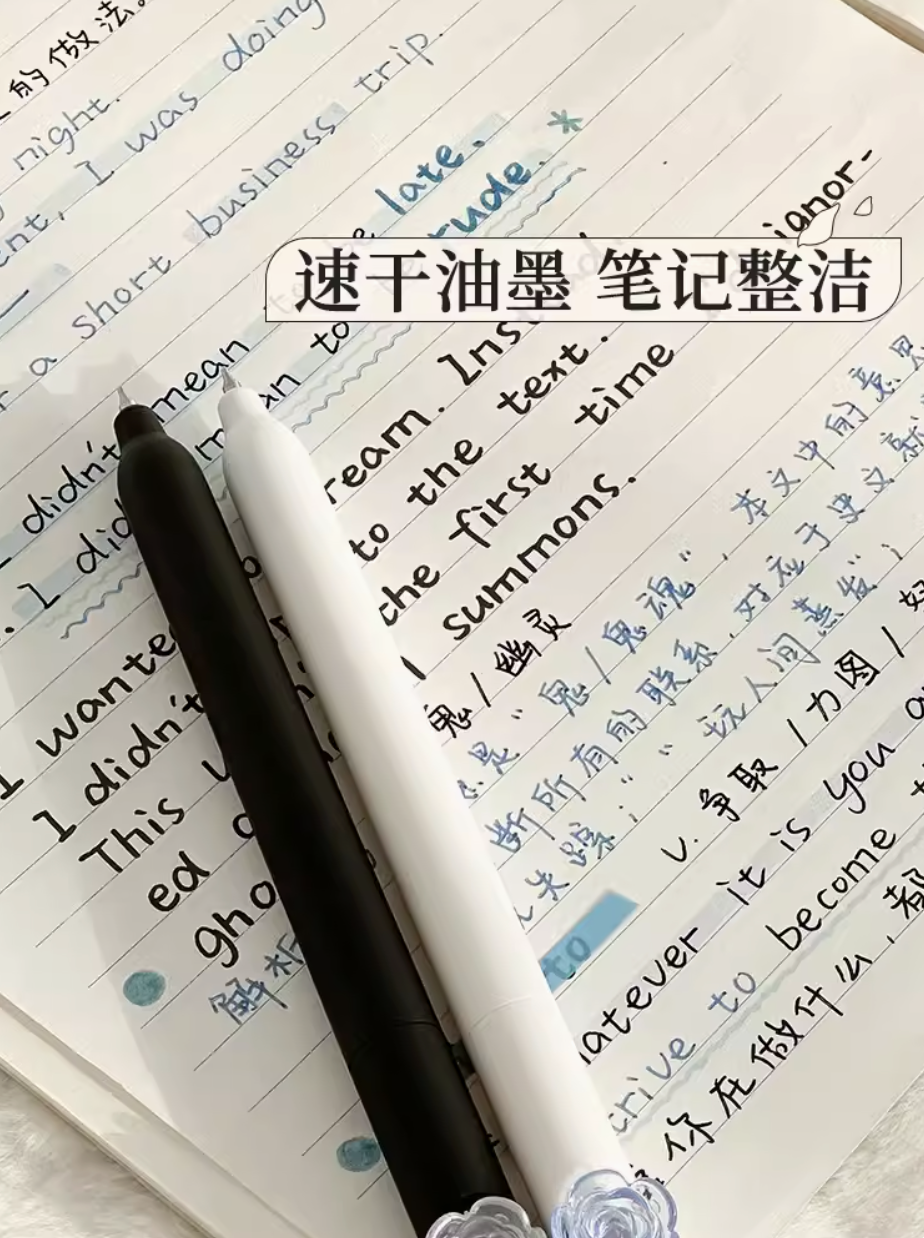 的做法。
night. doing
ent, I was
a short business trip.
I didn't mean to be late.
I did mean to rude. *
速干油墨 笔记整洁
I wante ream. Inst
I didn't to the text.
This the first time ignor-
ed summons.
gho 鬼/幽灵
解析 是“鬼/鬼魂”，本文中的意思
断所有的联系，对应于史文就
失踪；“ “ 玩人间蒸发”；
v. 争取 /力图/
to
hatever it is you
strive to become
你在做什么，都